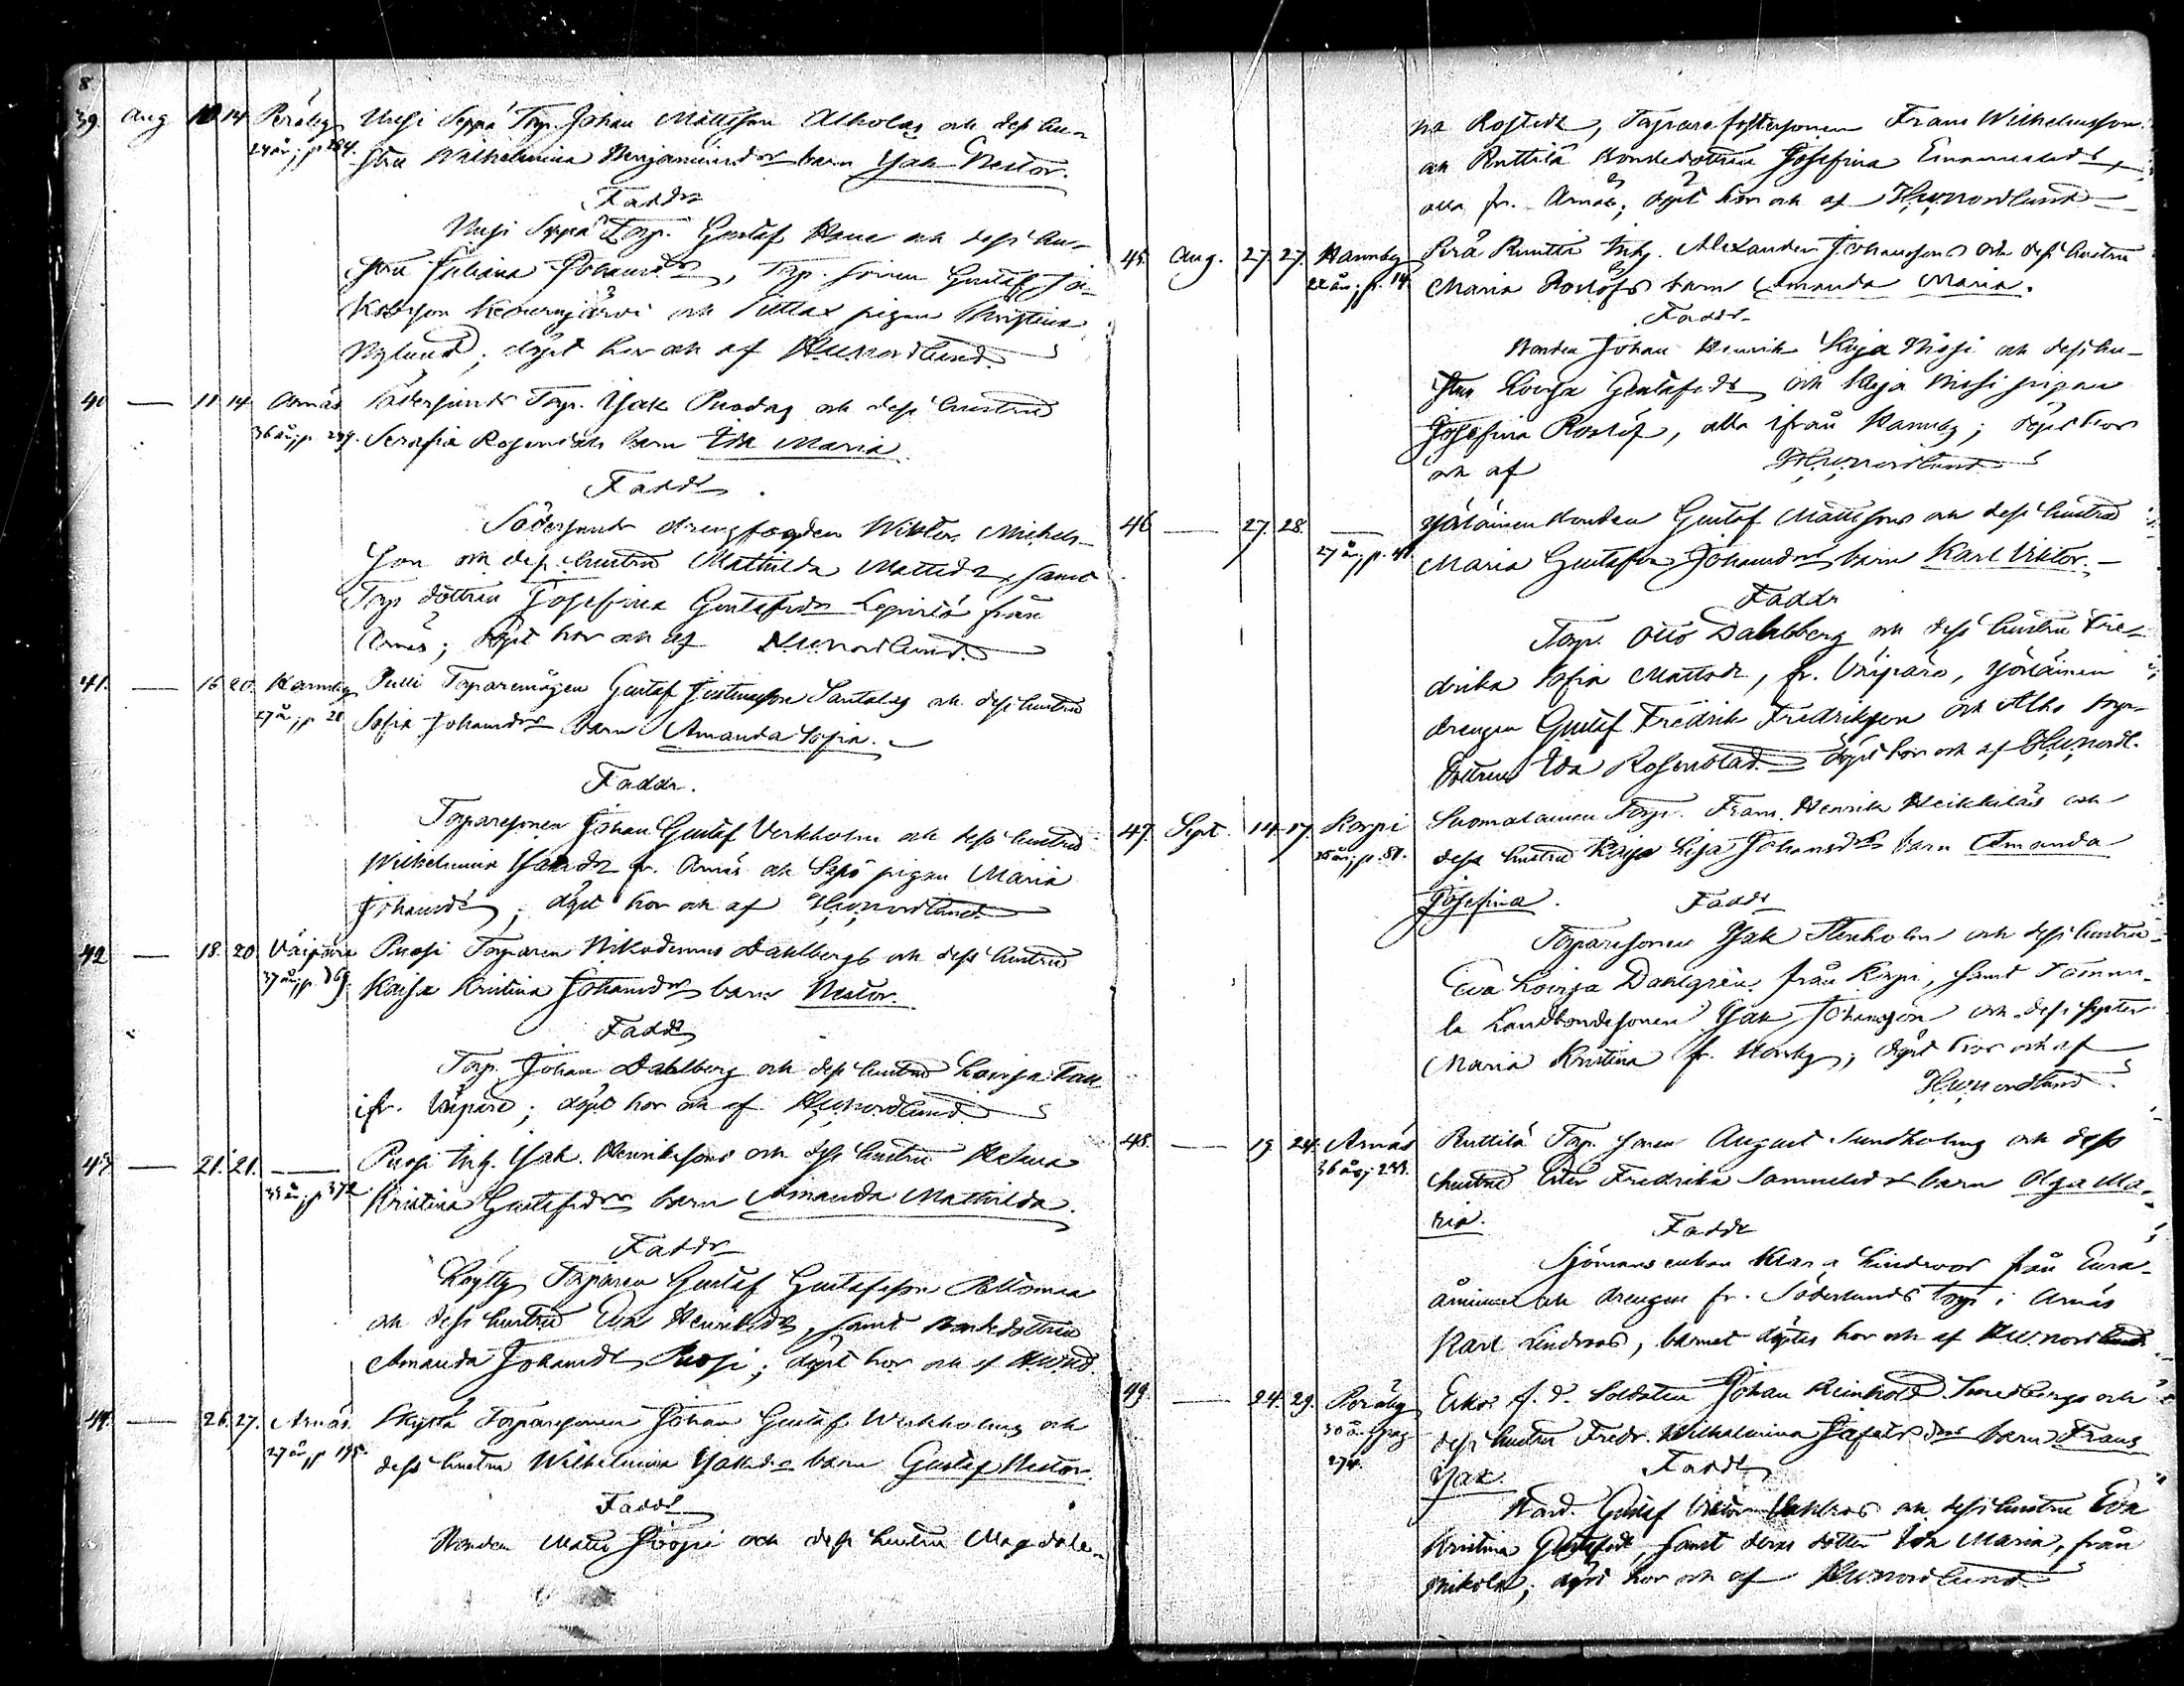 8
39. Aug 10 14 Peråby Uusi Seppä Torp. Johan Mattsson Alholas och dess hu-
24 år; p 284. stru Wilhelmina Benjaminsdr barn Isak Nestor.
Faddr
Uusi Seppä Torp. Gustaf och dess hu-
stru Juliana Johansdr, Torp. sonen Gustaf Ja-
kobsson och pigan Kristina
Nylund; döpt hor och af HWNordlund.
40 — 11 14 Arnäs Södersunds Torp. Isak och dess hustru
36 år; p 249. Serafia barn Ida Maria.
Faddr.
Södersunds drengfogden Wiktor Michels-
son och dess hustru Mathilda Mattsdr, samt
Torp dottren Josefina Gustafsdr från
Arnäs; döpt hor och af HWNordlund.
41. — 16 20. Hannby Pulli Torparemågen Gustaf Justinusson Santalas och dess hustru
27 år; p 28 Sofia Johansdr barn Amanda Sofia.
Faddr.
Torparesonen Johan Gustaf Verkholm och dess hustru
Wilhelmina Isaksdr fr. Arnäs och pigan Maria
Johansdr; döpt hor och af HWNordlund
42 — 18. 20. Väipäre Puosi Torparen Nikodemus Dahlbergs och dess hustru
37 år; p. Kaisa Kristina Johansdr barn Nestor.
Faddr
Torp. Johan Dahlberg och dess hustru Lovisa
ifr. Väipäre; döpt hor och af HWNordlund
43 — 21. 21. — Puosi Inh. Isak Henrikssons och dess hustru Helena
33 år; p 372 Kristina Gustafsdr barn Amanda Mathilda.
Faddr
Köytty Torparen Gustaf Gustafsson
och dess hustru Eva Henriksdr, samt bondedottren
Amanda Johansdr Puosi; döpt hor och af HWNd.
44. — 26. 27. Arnäs Torparesonen Johan Gustaf Werkholms och
27 år p 195. dess hustru Wilhelmina Isaksdr barn Gustaf Nestor.
Faddr
Bonden Matts och dess hustru Magdale-
na Rostedt, Torparefostersonen Frans Wilhelmsson
och Ruttilä bondedottren Josefina Emanuelsdr,
alla fr. Arnäs; döpt hor och af HWNordlund
45. Aug. 27. 27. Hannby Perä Inh. Alexander Johanssons och dess hustru
22 år; p. 14. Maria Roslöfs barn Amanda Maria.
Faddr
Bonden Johan Henrik och dess hu-
stru Lovisa Gustafsdr och pigan
Josefina Roslöf, alla ifrån Hannby; döpt hor
och af HWNordlund
46 — 27. 28. — Yläläinen bonden Gustaf Mattssons och dess hustru
27 år; p. 41. Maria Gustafva Johansdr barn Karl Viktor.
Faddr
Torp. Otto Dahlberg och dess hustru Fre-
drika Sofia Mattsdr, fr. Väipäre,
drengen Gustaf Fredrik Fredriksson och Alho torp-
dottren Ida Rosenblad. döpt hor och af HWNordl.
47. Sept. 14. 17. Korpi Suomalainen Torp. Frans Henrik Heikkiläs och
35 år; p. 81. dess hustru Lisa Johansdr barn Amanda
Josefina. Faddr
Torparesonen Isak Stenholm och dess hustru
Eva Lovisa Dahlgren från Korpi, samt Tommi-
la Landbondesonen Isak Johansson och dess syster
Maria Kristina fr. döpt hor och af
HWNordlund
48. — 19. 24. Arnäs Ruttilä Torp. sonen August Sundholms och dess
36 år; 233. hustru Fredrika Samuelsdr barn Olga Ma-
ria. Faddr
Sjömansenkan Klara Lindroos från Eura-
åminne och drengen fr. Söderlunds Torp i Arnäs
Karl Lindroos, barnet döptes hor och af HWNordlund
49. — 24. 29. Peråby Esko f. d. Soldaten Johan Reinhold Smedbergs och
30 år pag dess hustru Fredr. Wilhelmina Jafetsdr barn Frans
274. Isak. Faddr
Gustaf Viktor och dess hustru Eva
Kristina Gustafsdr, samt deras dotter Ida Maria, från
Mikola; döpt hor och af HWNordlund